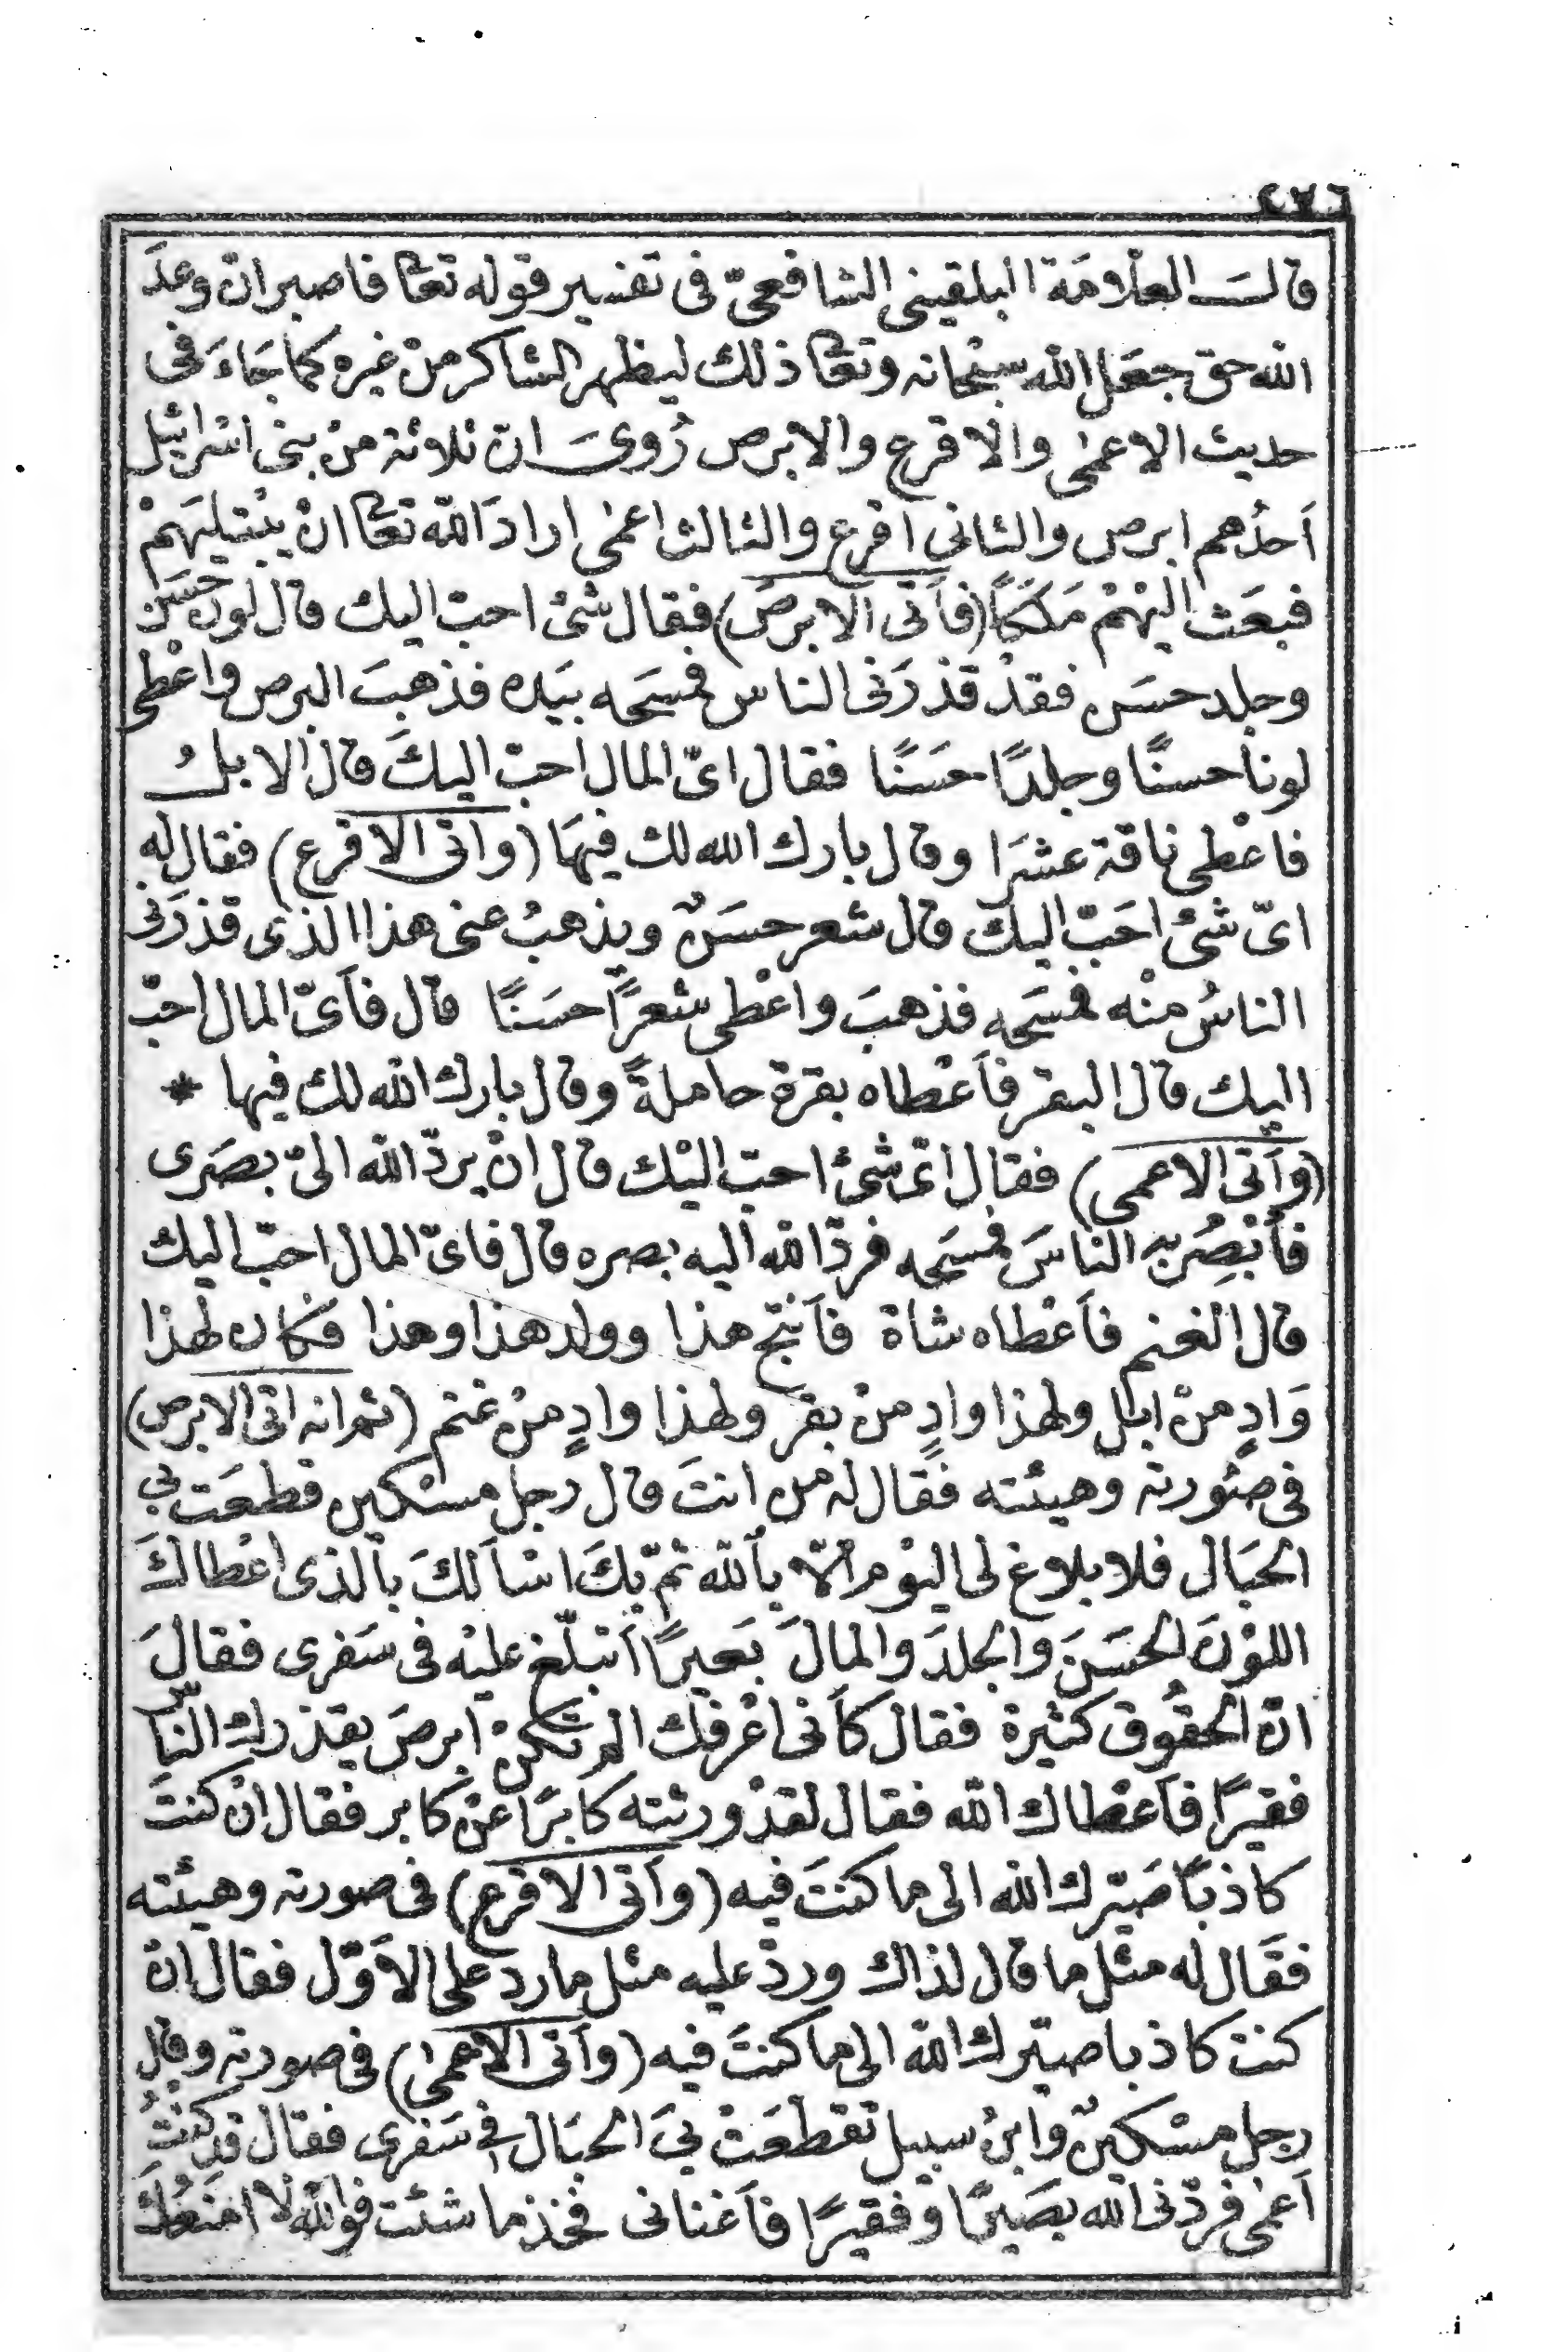 ٢٧٦
قال العلامَة البلقينى الشافعىّ فى تفسير قوله تعا فاصبر ان وعدَ
الله حق جعَل الله سبْحانه وتعا ذلك ليظهر الشاكر منْ غيره كما جَاءَ فى
حديث الاعمٰى والاقرع والابرص رُوىَ انّ ثلاثة منْ بنى اسْرائيل
اَحدُهم ابرص والثانى اقرع والثالث اعمٰى ارادَ الله تعا انْ يبْتليَهمْ
فبعَث اليْهمْ مَلكًا (فاَتى الابرصَ) فقال شئ احبّ اليك قال لون حسَن
وجلد حسَن فقدْ قذرَنى الناس فمسَحه بيَده فذهبَ البرص واعْطى
لونا حسنًا وجلدًا حسَنًا فقال اىّ المال احبّ اليكَ قال الابلُ
فاعْطى ناقة عشرَا وقال بارك الله لك فيهَا (واتى الاقرع) فقال له
اىّ شئ احَبّ اليكَ قال شعر حسَنٌ ويذهبُ عنى هذا الذى قذرَنى
الناسُ منْه فمسَحه فذهبَ واعْطى شعرًا حسَنًا قال فاَىّ المال احبّ
اليك قال البقر فاَعْطاه بقرة حاملةً وقال بارك الله لك فيها *
(واَتى الاعمى) فقال اىّ شئ احبّ اليْك قال انْ يردّ الله الىّ بصَرى
فاُبْصِرُ به الناسَ فمسَحه فردّ الله اليه بصره قال فاىّ المال احبّ اليك
قال الغنم فاَعْطاه شاة فاَنتج هذا وولد هذا وهذا فكان لهذا
وَادٍ منْ ابل ولهذا وادٍ منْ بقر ولهذا وادٍ منْ غنم (ثم انه اتى الابرص)
فى صُورته وهيئته فقال له من انتَ قال رجل مسْكين قطعَت بى
الحبَال فلا بلاغ لى اليوْم الاّ باُلله ثمّ بكَ اسْاَلكَ باَلذى اعْطاكَ
اللوْنَ الحسَنَ والجلدَ والمالَ بَعيرًا اَتبلّغ عليْه فى سَفرى فقالَ
انّ الحقُوق كثيرة فقال كاَنى اعْرفك الم تكنْ ابرصَ يقذرك النّاس
فقيرًا فاَعْطاك الله فقال لقدْ ورثته كابرًا عنْ كابر فقال انْ كنتَ
كاذبًا صَيّرك الله الى ما كنتَ فيه (واَتى الاقرع) فى صورته وهيئته
فقَال له مثل ما قال لذاك وردّ عليه مثل مارد على الاَوّل فقال انْ
كنت كاذبا صيّرك الله الى ما كنتَ فيه (واَتى الاعمٰى) فى صورته وقال
رجل مسْكينٌ وابنُ سبيل تقطّعَتْ بىَ الحبَال فى سَفرى فقال قد كنْتُ
اَعمٰى فردّنى الله بصَيرًا وفقيرًا فاَغنانى فخذ ما شئت فوالله لا امْنعُكَ